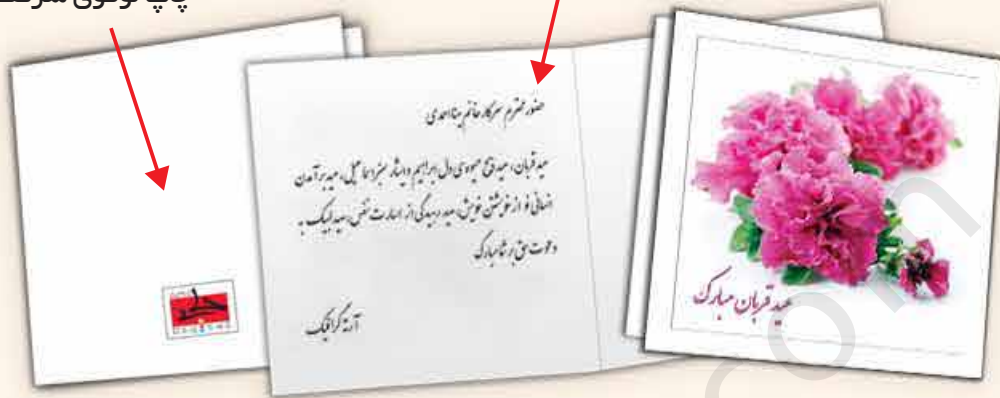 چاپ لوگوی شرکت
حضور محترم سرکار خانم مینا احمدی
عید قربان، عید ذبح دل ابراهیم و ایثار سبز اسماعیلی، عید برآمدن
انسانی نو از خویشتن خویش، عید رهیدگی از اسارت نفس، عید لبیک به
دعوت حق بر شما مبارک
آرته گرافیک
عید قربان مبارک
com